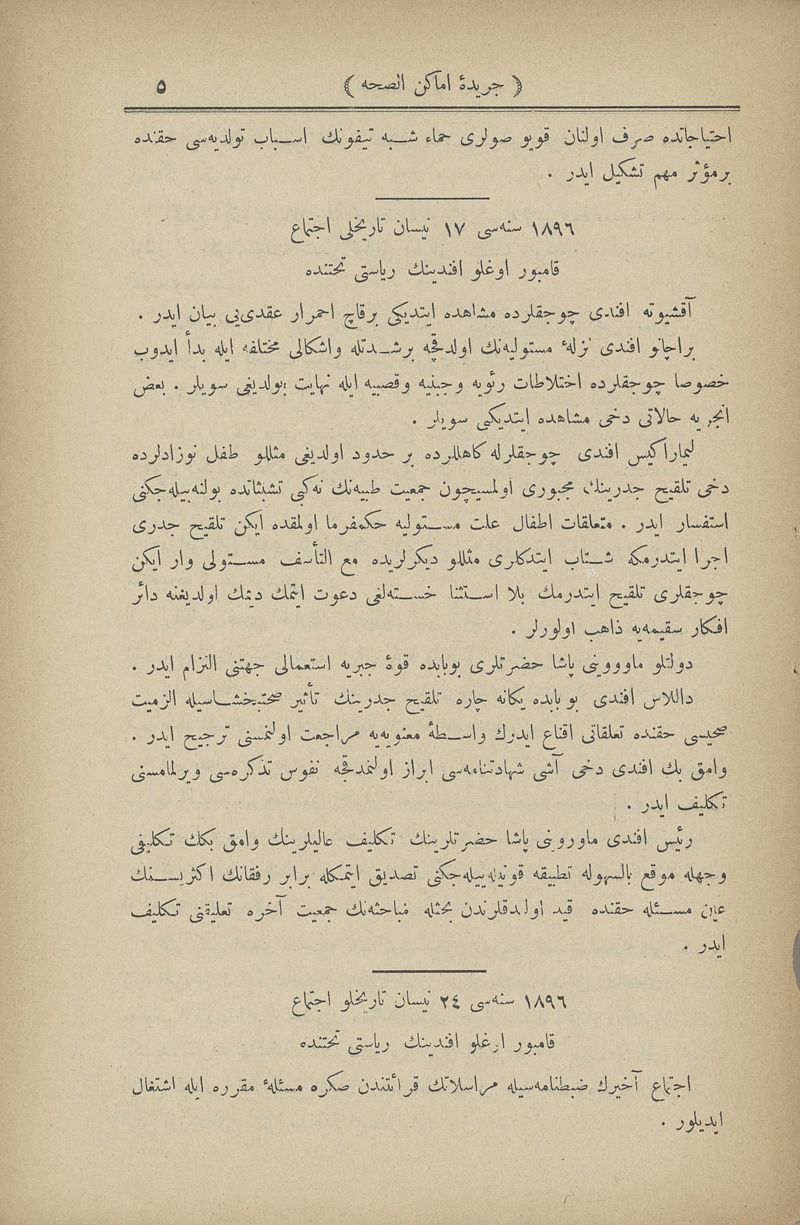 ﴿ جريدۀ اماكن الصحه ﴾ ٥
احتياجاتده صرف اولنان قويو صولری حماء شـبه تيفونك اسـباب توليديه‌سی حقنده
برمؤثر مهم تشكيل ايدر .
١٨٩٦ سنه‌سی ١٧ نيسان تاريخلی اجتماع
قامبور اوغلو افندينك رياستی تحتنده
آقشيوته افندی چوجقلرده مشاهده ايتديكی برقاچ احمرار عقدی‌يی بيان ايدر .
براچانو افندی نزلهٔ مستوليه‌نك اولدقجه برشـدتله واشكالی مختلفه ايله بدأ ايدوب
خصوصا چوجقلرده اختلاطات رئويه وجنبيه وقصبيه ايله نهايت بولديغی سويلر . بعض
انجريه حالاتی دخی مشاهده ايتديكی سويلر .
ليماراكيس افندی چوجقلرله كاهللرده بر حدود اولديغی مثللو طفل نوزادلرده
دخی تلقيح جدرينك مجبوری اولمسيچون جمعيت طبيه‌نك نه‌كبی تشبثاتده بولنه‌بيله‌جكنی
استفسار ايدر . متعلقات اطفال علت مسـتوليه حكمفرما اولمقده ايكن تلقيح جدری
اجرا ايتدرمكه شـتاب ايتدكلری مثللو ديكرلريده مع التأسف مسـتولی وار ايكن
چوجقلری تلقيح ايتدرمك بلا اسـتثنا خسـته‌لغی دعوت ايتمك ديمك اولديغنه دائر
افكار سقيمه‌يه ذاهب اولورلر .
دولتلو ماوروينی پاشا حضرتلری بوبابده قوۀ جبريه استعمالی جهتنی التزام ايدر .
داللاس افندی بو بابده يكانه چاره تلقيح جدرينك تأثير صحتبخشـاسيله الزميت
صحيسی حقنده تعلقاتی اقناع ايدرك واسـطۀ معنويه‌يه مراجعت اولنمسنی ترجيح ايدر .
وامق بك افندی دخی آشی شهادتنامه‌سی ابراز اولنمدقجه نفوس تذكره‌سی ويرلمامسنی
تكليف ايدر .
رئيس افندی ماورونی پاشا حضرتلرينك تكليف عاليلرينك وامق بكك تكليفی
وجهله موقع بالسهوله تطبيقه قونيله‌بيله‌جكنی تصديق ايتمكله برابر رفقانك اكثريسـنك
عين مسـئله حقنده قيد اولدقلرندن بحثله مباحثه‌نك جمعيت آخره تعليقنی تكليف
ايدر .
١٨٩٦ سنه‌سی ٢٤ نيسان تاريخلو اجتماع
قامبور اوغلو افندينك رياستی تحتنده
اجتماع آخيرك ضبطنامه‌سيله مراسلاتك قرائتندن صكره مسئلهٔ مقرره ايله اشتغال
ايديلور .